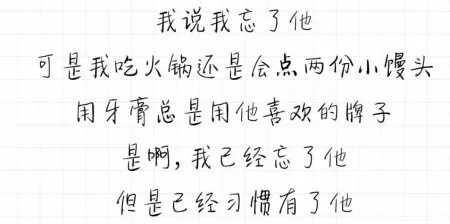 我说我忘了他
可是我吃火锅还是会点两份小馒头
用牙膏总是用他喜欢的牌子
是啊,我已经忘了他
但是已经习惯有了他